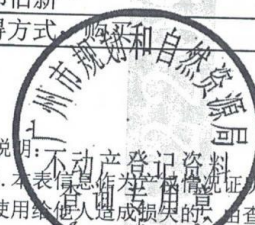 得方式 购买
广州市规划和自然资源局
说明:
不动产登记资料
查询专用章
.本表信息作为产权情况证
使用给他人造成损失的,由查